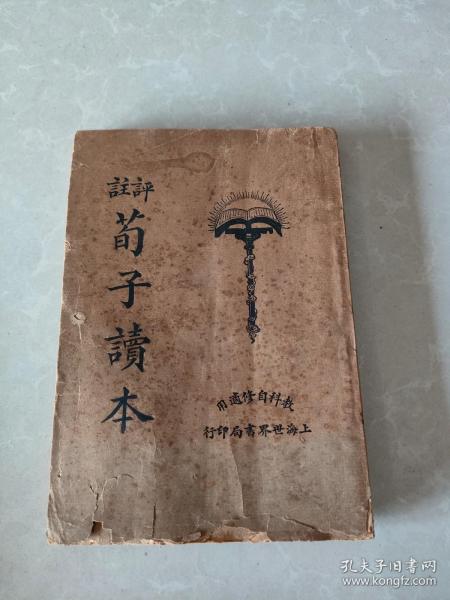 評註
荀子讀本
教科自修適用
上海世界書局印行
孔夫子旧书网
www.kongfz.com